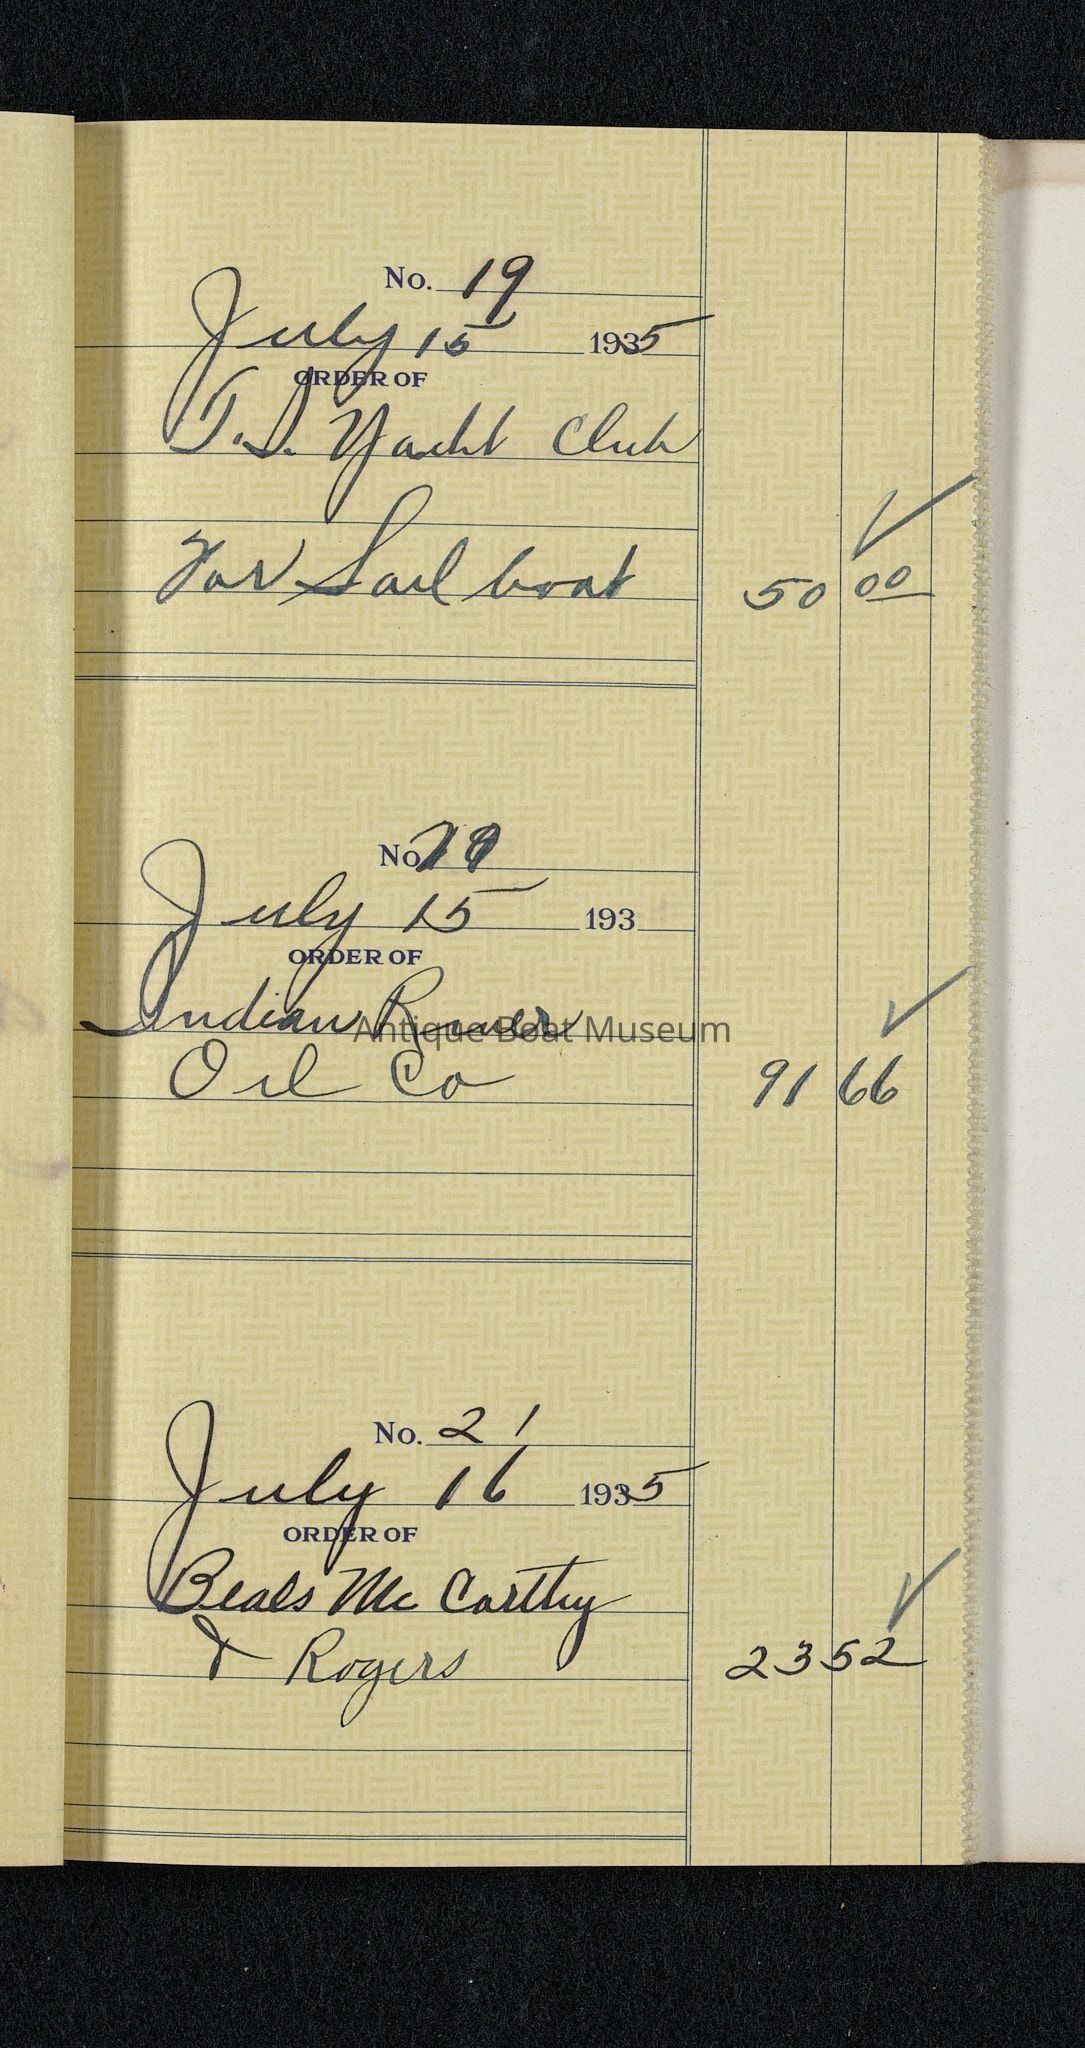 No. 19
July 15 1935
ORDER OF
T.I. Yacht Club
For Sail boat 50 00
No.
July 15 193
ORDER OF
Indian River
Antique Boat Museum
Oil Co 91 66
No. 21
July 16 1935
ORDER OF
Beals Mc Carthy
& Rogers 23 52